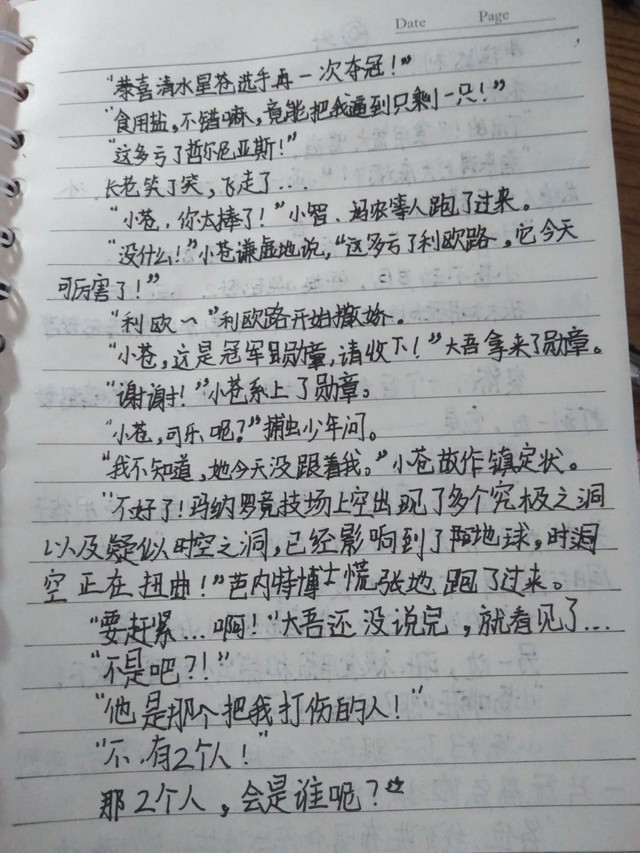 Date Page
“恭喜清水星苍选手再一次夺冠！”
“食用盐，不错嘛，竟能把我逼到只剩一只！”
“这多亏了哲尔尼亚斯！”
长老笑了笑，飞走了...
“小苍，你太棒了！”小智、玛农等人跑了过来。
“没什么！”小苍谦虚地说，“这多亏了利欧路，它今天
可厉害了！”
“利欧～”利欧路开始撒娇。
“小苍，这是冠军勋章，请收下！”大吾拿来了勋章。
“谢谢！”小苍系上了勋章。
“小苍，可乐呢？”捕虫少年问。
“我不知道，她今天没跟着我。”小苍故作镇定状。
“不好了！玛纳罗竞技场上空出现了多个究极之洞
以及疑似时空之洞，已经影响到了地球，时
空正在扭曲！”芭内特博士慌张地跑了过来。
“要赶紧...啊！”大吾还没说完，就看见了...
“不是吧？！”
“他是那个把我打伤的人！”
“不，有2个人！”
那2个人，会是谁呢？